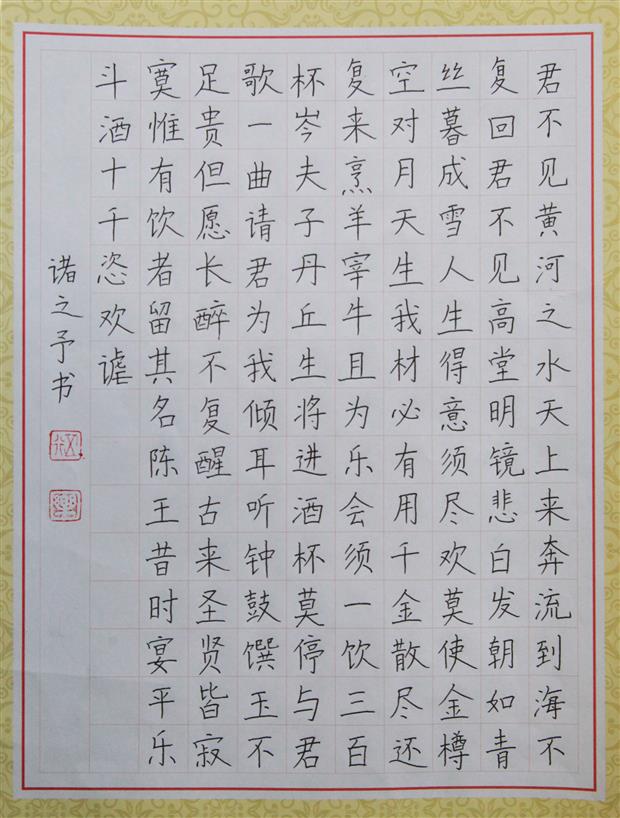 君不见黄河之水天上来奔流到海不
复回君不见高堂明镜悲白发朝如青
丝暮成雪人生得意须尽欢莫使金樽
空对月天生我材必有用千金散尽还
复来烹羊宰牛且为乐会须一饮三百
杯岑夫子丹丘生将进酒杯莫停与君
歌一曲请君为我倾耳听钟鼓馔玉不
足贵但愿长醉不复醒古来圣贤皆寂
寞惟有饮者留其名陈王昔时宴平乐
斗酒十千恣欢谑
诸之予书